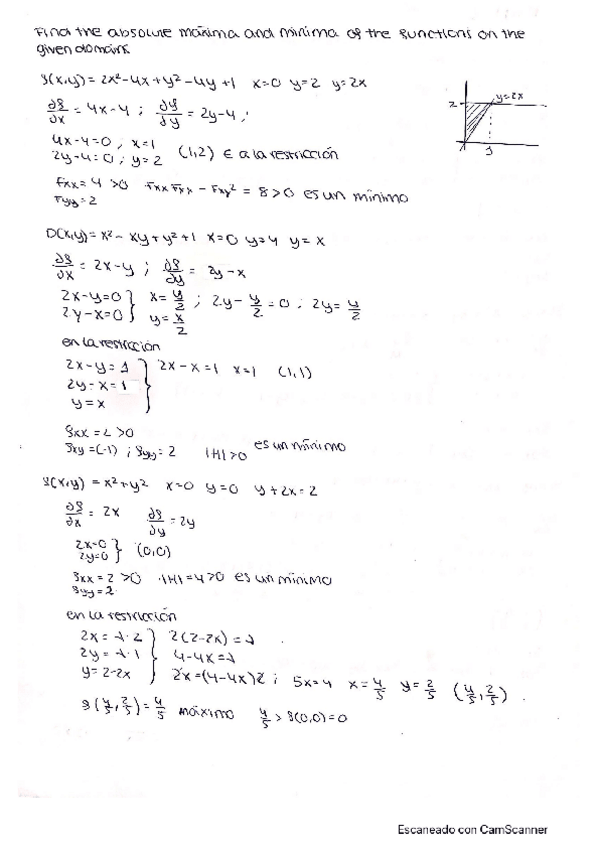 Find the absolute máxima and minima of the functions on the
given domains
f(x,y) = 2x² - 4x + y² - 4y + 1 x=0 y=2 y=2x
∂f/∂x = 4x-4 ; ∂f/∂y = 2y-4 ;
2 y=2x
1
4x-4=0 ; x=1
2y-4=0 ; y=2 (1,2) ∈ a la restricción
Fxx = 4 >0 Fxx Fxx - Fxy² = 8 >0 es un mínimo
Fyy = 2
D(x,y) = x² - xy + y² + 1 x=0 y=4 y=x
∂f/∂x = 2x-y ; ∂f/∂y = 2y-x
2x-y=0 } x = y/2 ; 2y - y/2 = 0 ; 2y = y/2
2y-x=0 } y = x/2
en la restricción
2x-y = 1 } 2x-x=1 x=1 (1,1)
2y-x = 1
y=x
fxx = 2 >0
fxy = (-1) ; fyy = 2 |H| >0 es un mínimo
f(x,y) = x² + y² x=0 y=0 y+2x=2
∂f/∂x = 2x ∂f/∂y = 2y
2x=0 } (0,0)
2y=0
fxx = 2 >0 |H| = 4 >0 es un mínimo
fyy = 2
en la restricción
2x = λ·2 } 2(2-2x) = λ
2y = λ·1 4-4x = λ
y = 2-2x 2x = (4-4x)2 ; 5x=4 x = 4/5 y = 2/5 (4/5, 2/5)
f(4/5, 2/5) = 4/5 máximo 4/5 > f(0,0) = 0
Escaneado con CamScanner